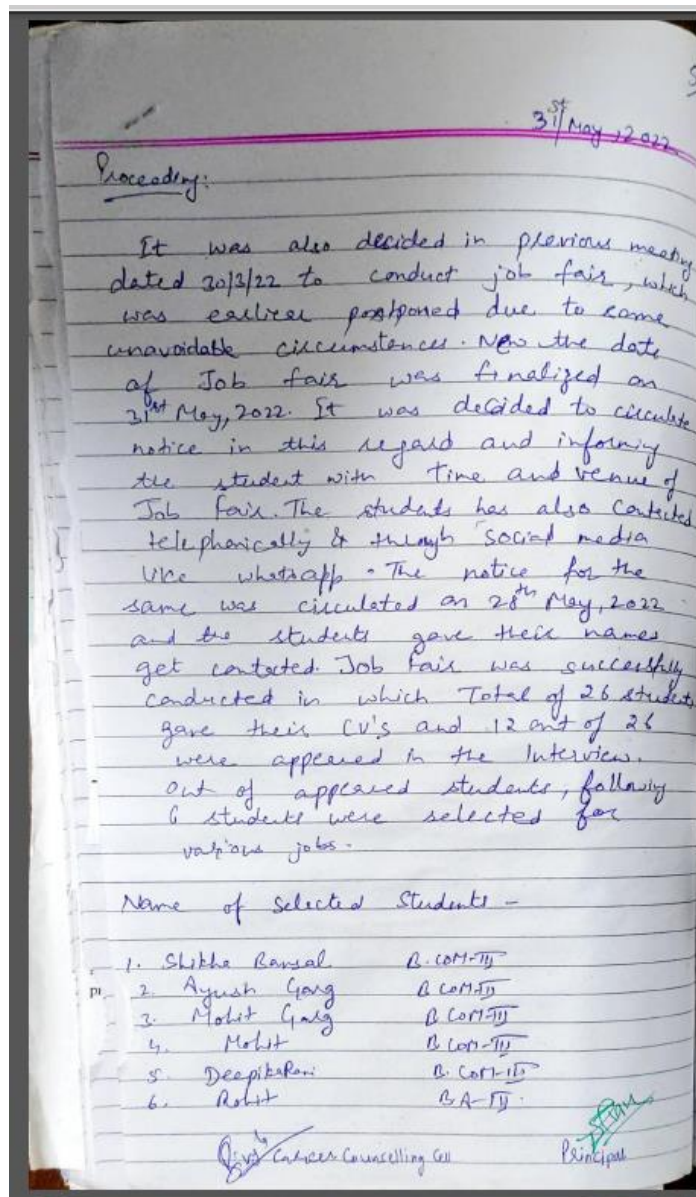 31st May, 2022
Proceeding:
It was also decided in previous meeting
dated 30/3/22 to conduct job fair, which
was earlier postponed due to some
unavoidable circumstances. Now the date
of Job fair was finalized on
31st May, 2022. It was decided to circulate
notice in this regard and informing
the student with Time and venue of
Job fair. The students has also Contacted
telephonically & through social media
like whatsapp. The notice for the
same was circulated on 28th May, 2022
and the students gave their names
get contacted. Job Fair was successfully
conducted in which Total of 26 students
gave their CV's and 12 out of 26
were appeared in the Interview.
Out of appeared students, following
6 students were selected for
various jobs.
Name of Selected Students -
1. Shikha Bansal B.COM-III
2. Ayush Garg B COM-III
3. Mohit Garg B COM-III
4. Mohit B COM-III
5. Deepika Rani B. COM-III
6. Rohit BA-III.
Career Counselling Cell Principal